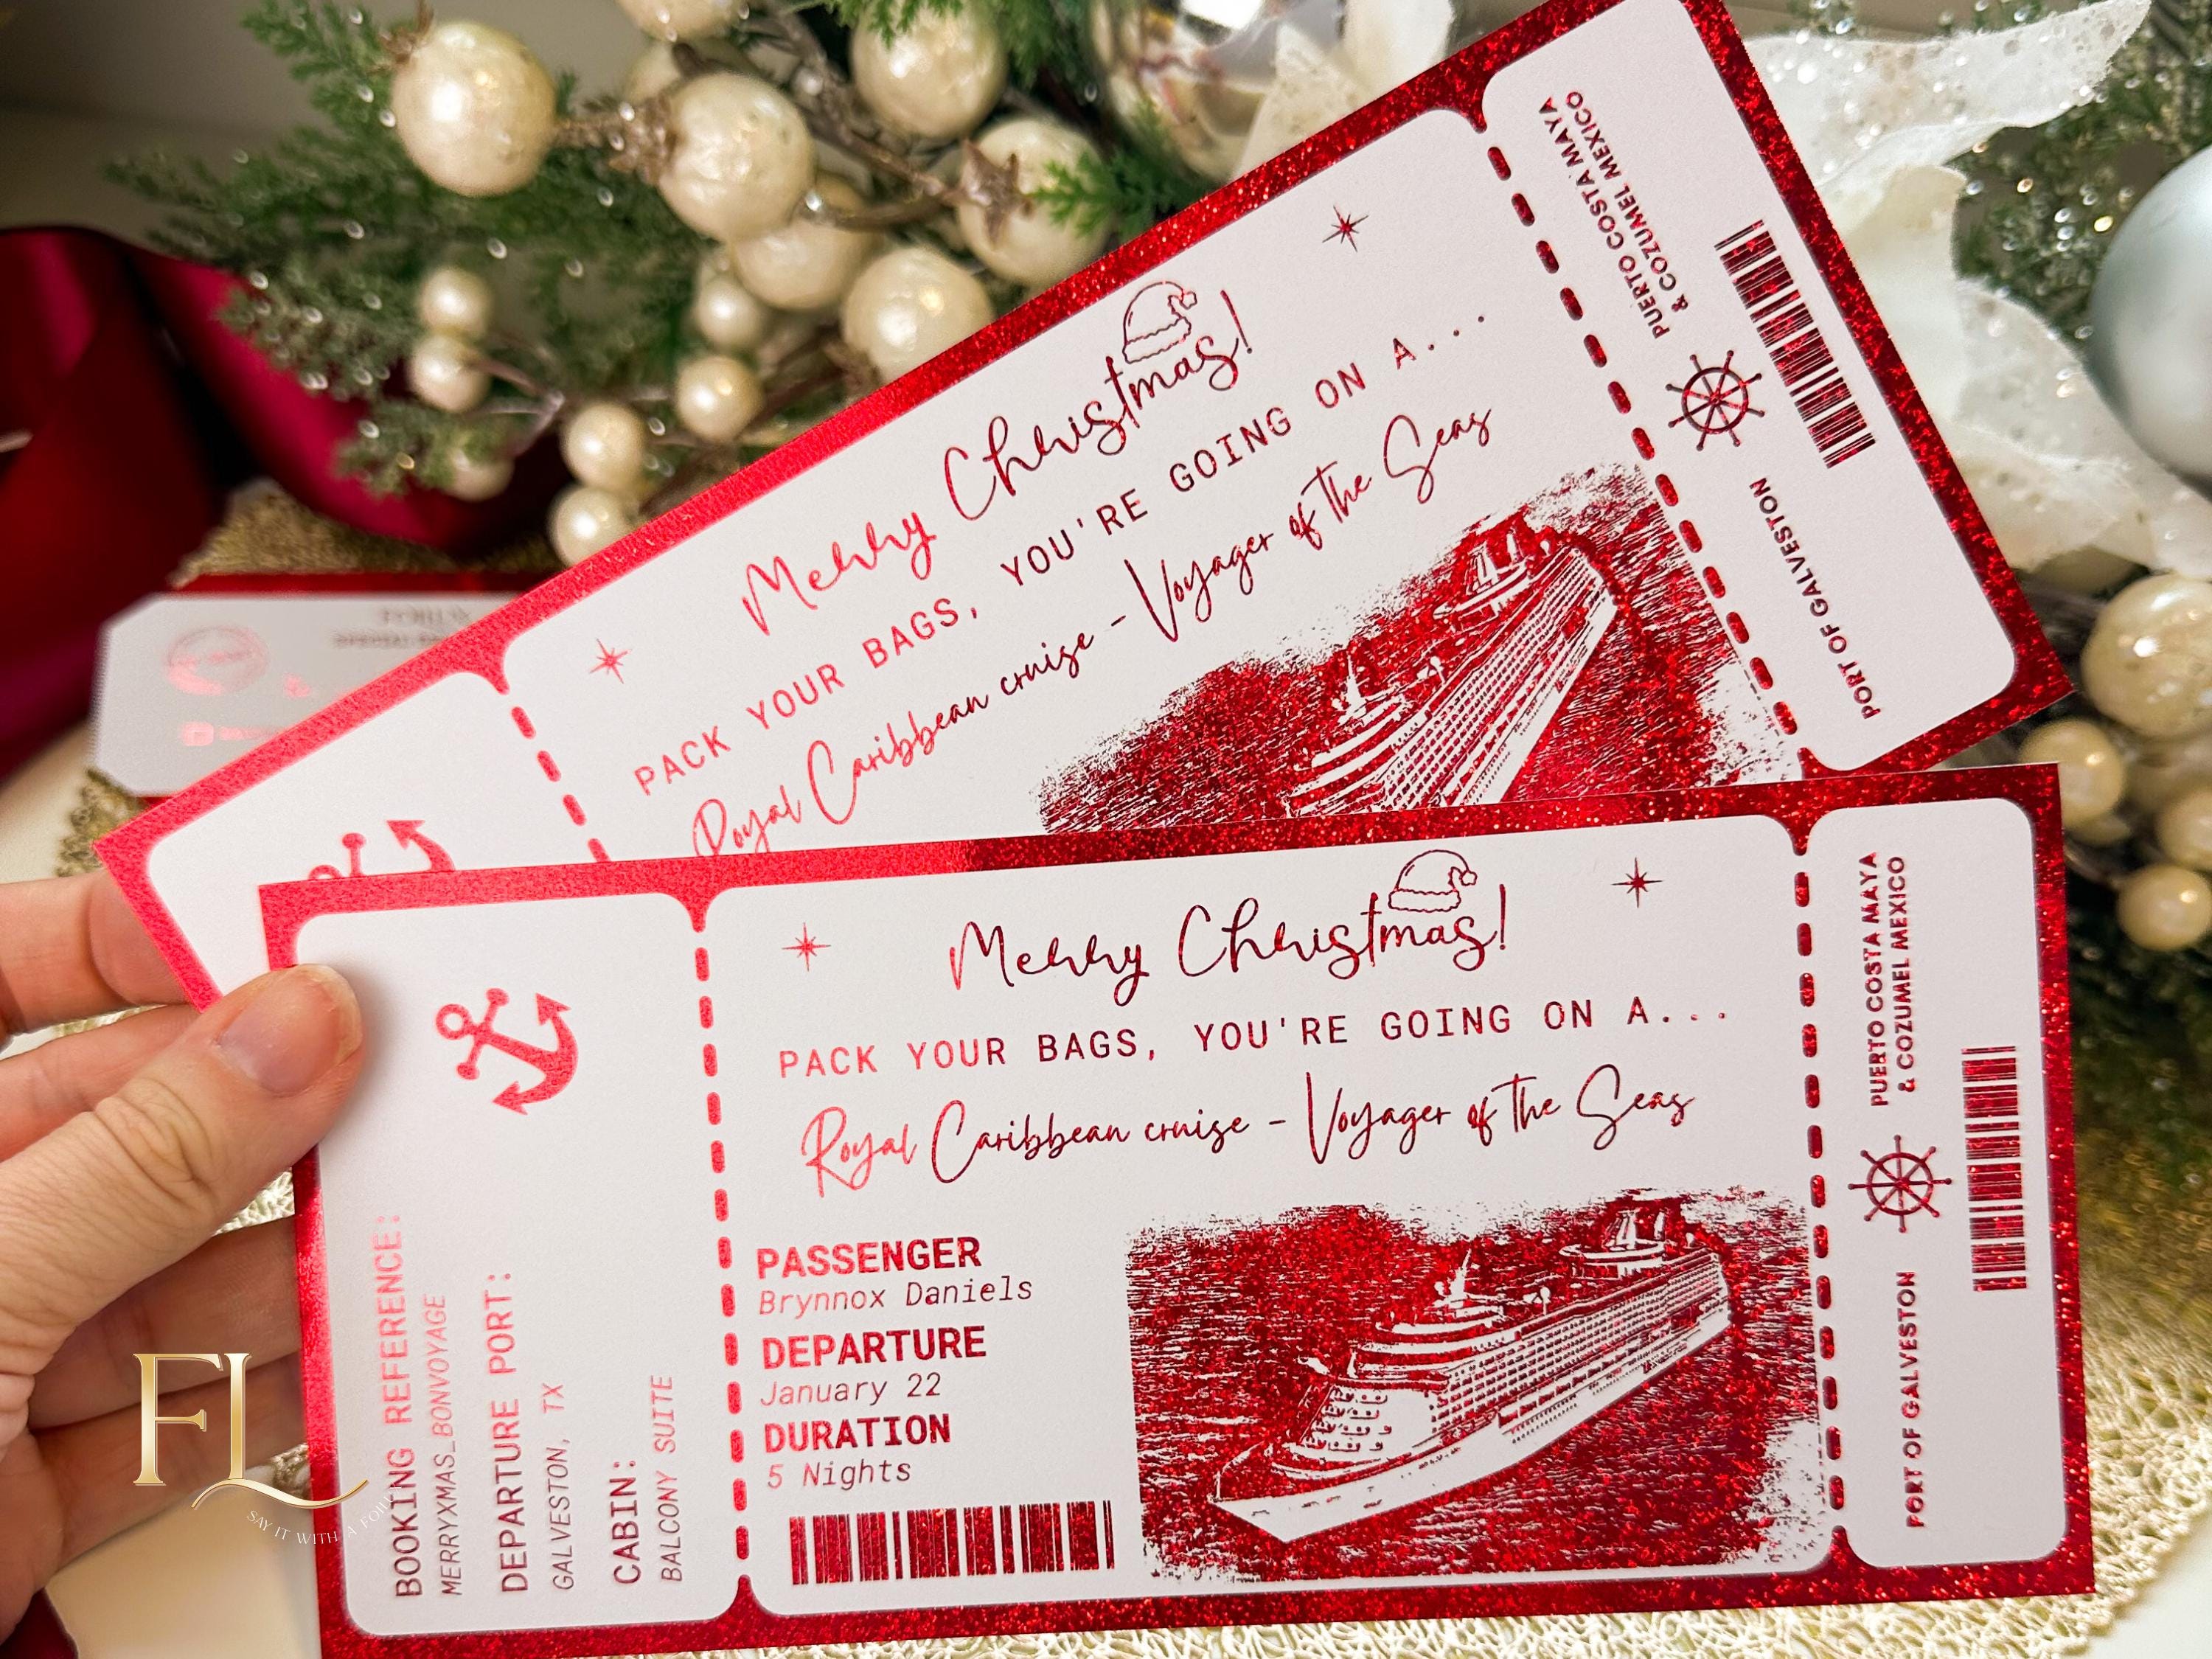 PUERTO COSTA MAYA
& COZUMEL MEXICO
PORT OF GALVESTON
Merry Christmas!
PACK YOUR BAGS, YOU'RE GOING ON A...
Royal Caribbean cruise - Voyager of the Seas
Merry Christmas!
PACK YOUR BAGS, YOU'RE GOING ON A...
Royal Caribbean cruise - Voyager of the Seas
PASSENGER
Brynnox Daniels
DEPARTURE
January 22
DURATION
5 Nights
BOOKING REFERENCE:
MERRYXMAS_BONVOYAGE
DEPARTURE PORT:
GALVESTON, TX
CABIN:
BALCONY SUITE
PUERTO COSTA MAYA
& COZUMEL MEXICO
PORT OF GALVESTON
FL
SAY IT WITH A FOIL